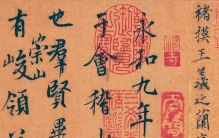 褚摸王羲之蘭
永和九年
于會稽
也羣賢畢
有崇山峻領